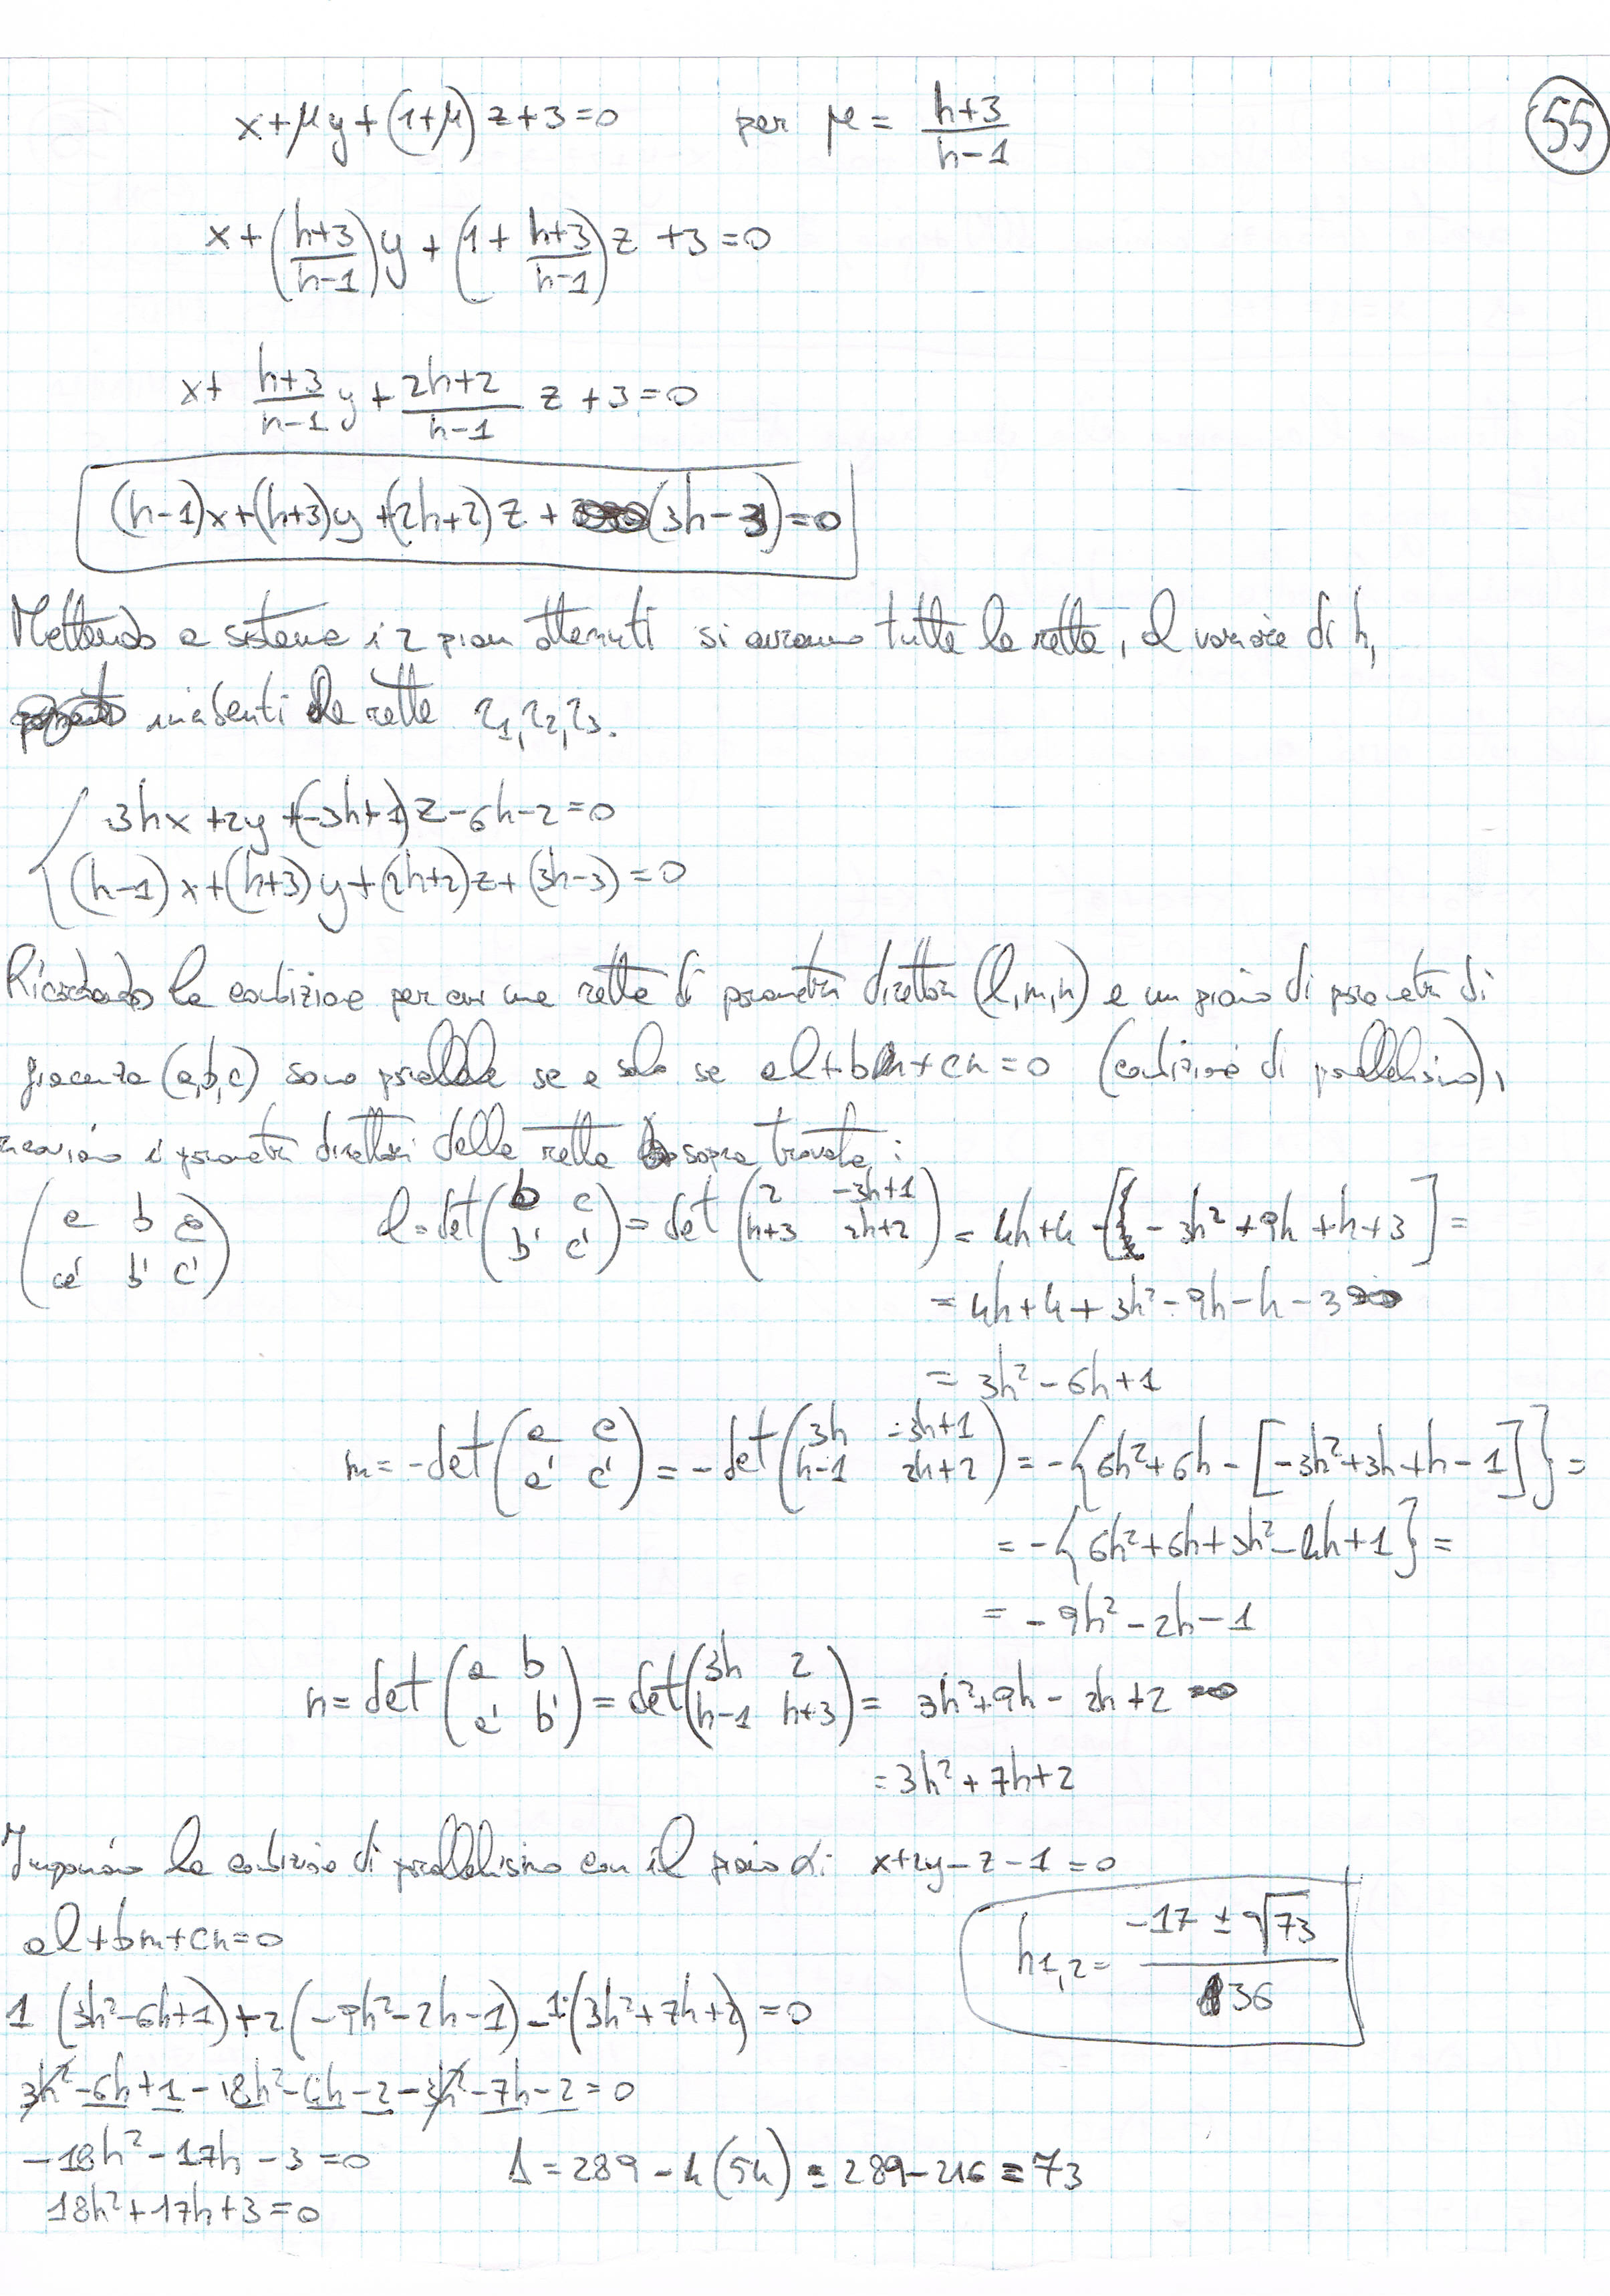 x+μy+(1+μ)z+3=0 per μ= (h+3)/(h-1)
55
x+((h+3)/(h-1))y+(1+(h+3)/(h-1))z+3=0
x+ (h+3)/(h-1) y+ (2h+2)/(h-1) z+3=0
(h-1)x+(h+3)y+(2h+2)z+(3h-3)=0
Mettendo a sistema i 2 piani ottenuti si avranno tutte le rette, al variare di h,
incidenti alle rette r1, r2, r3.
3hx+2y+(-3h+1)z-6h-2=0
(h-1)x+(h+3)y+(2h+2)z+(3h-3)=0
Ricordando la condizione per cui una retta di parametri direttori (l,m,n) e un piano di parametri di
giacenza (a,b,c) sono parallele se e solo se al+bm+cn=0 (condizione di parallelismo),
ricaviamo i parametri direttori della retta sopra trovata:
(a b c / a' b' c') l=det(b c / b' c')=det(2 -3h+1 / h+3 2h+2)=4h+4-[-3h²+9h+h+3]=
=4h+4+3h²-9h-h-3
=3h²-6h+1
m=-det(a c / a' c')=-det(3h -3h+1 / h-1 2h+2)=-{6h²+6h-[-3h²+3h+h-1]}=
=-{6h²+6h+3h²-4h+1}=
=-9h²-2h-1
n=det(a b / a' b')=det(3h 2 / h-1 h+3)=3h²+9h-2h+2
=3h²+7h+2
Imponiamo la condizione di parallelismo con il piano α: x+2y-z-1=0
al+bm+cn=0
h1,2= (-17±√73)/36
1(3h²-6h+1)+2(-9h²-2h-1)-1·(3h²+7h+2)=0
3h²-6h+1-18h²-4h-2-3h²-7h-2=0
-18h²-17h-3=0 Δ=289-4(54)=289-216=73
18h²+17h+3=0